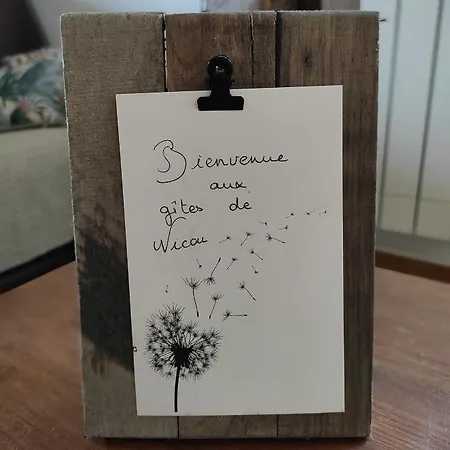 Bienvenue
aux
gîtes de
Nicou